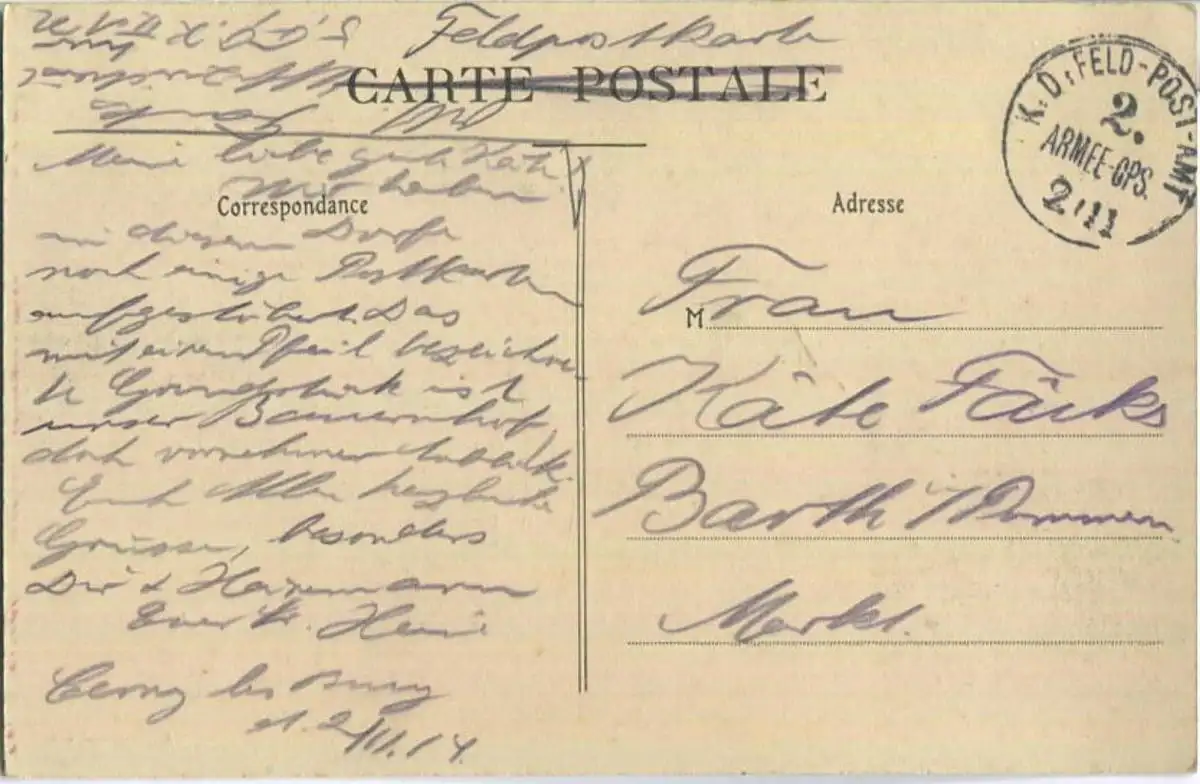 Feldpostkarte
CARTE POSTALE
K. D. FELD-POST-AMT
2.
ARMEE-CPS.
2/11
Meine liebe gute Käte!
Wir haben
Correspondance
in diesem Dorfe
noch einige Postkarten
aufgestöbert. Das
mit einem Pfeil bezeichne-
te Grundstück ist
unser Bauernhof,
doch vornehmer
Euch Allen herzliche
Grüsse, besonders
Dir & Heinemann
Euer tr. Heini
Cerny les Bucy
d. 2/11.14.
Adresse
M
Frau
Käte
Barth i/Pommern
Markt.